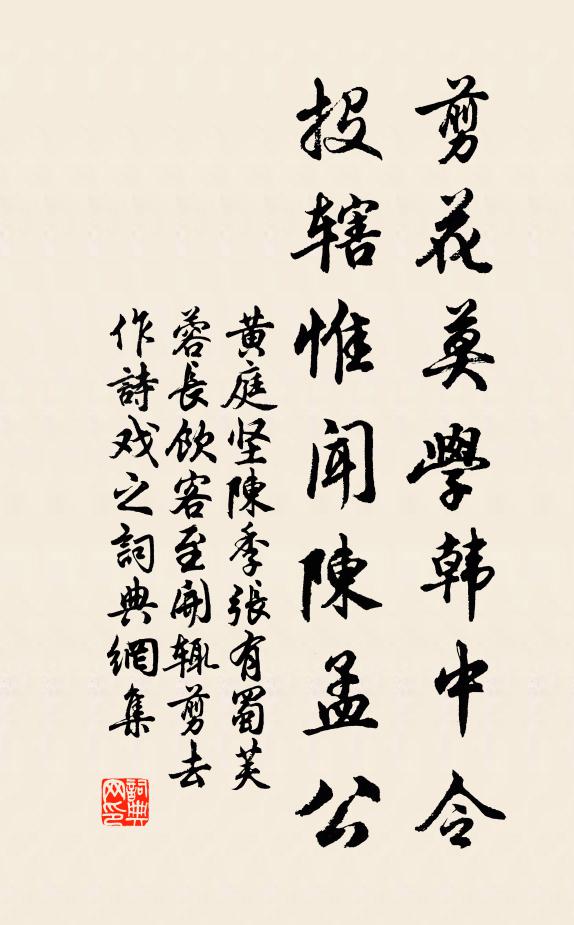 剪花莫學韩中令
投辖惟闻陳孟公
黄庭坚陳季張有蜀芙
蓉長飲客至開辄剪去
作詩戏之詞典網集
詞典
网印